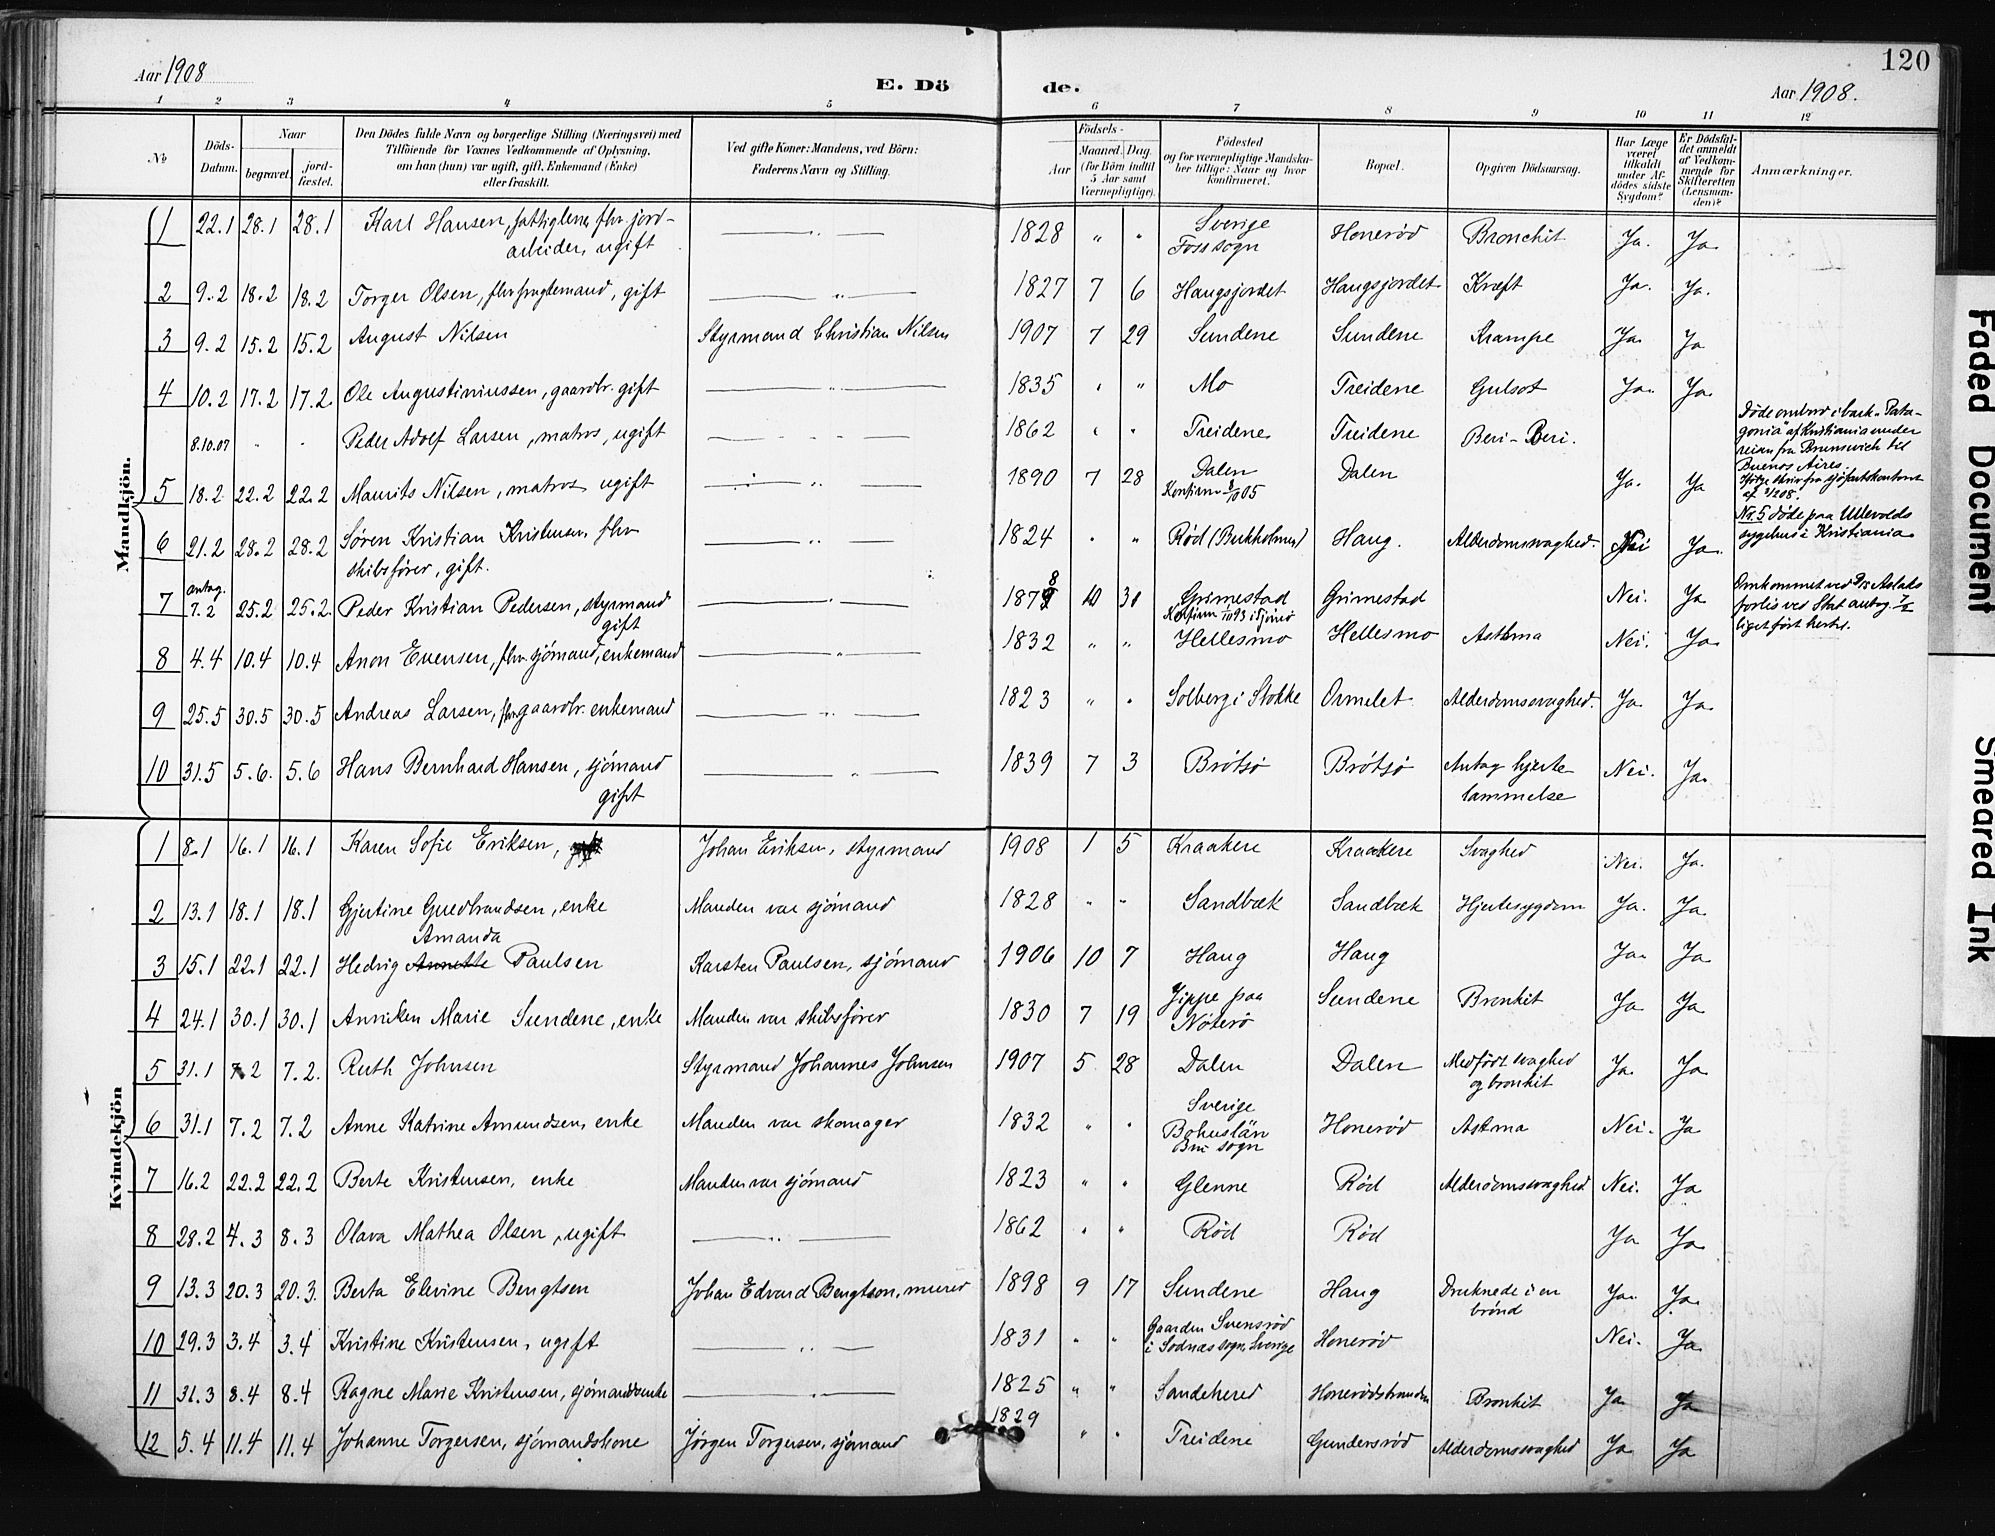 120
Aar 1908
E. Dö
de.
Aar 1908.
1 2 3 4 5 6 7 8 9 10 11 12
№
Döds-
Datum.
Naar
begravet.
jord-
fæstet.
Den Dödes fulde Navn og borgerlige Stilling (Næringsvei) med
Tilföiende for Voxnes Vedkommende af Oplysning,
om han (hun) var ugift, gift, Enkemand (Enke)
eller fraskilt.
Ved gifte Koner: Mandens, ved Börn:
Faderens Navn og Stilling.
Födsels-
Aar
Maaned.
Dag.
(for Börn indtil
5 Aar samt
Værnepligtige).
Födested
og for værnepligtige Mandska-
ber tillige: Naar og hvor
konfirmeret.
Bopæl.
Opgiven Dödsaarsag.
Har Læge
været
tilkaldt
under Af-
dödes sidste
Sygdom?
Er Dödsfal-
det anmeldt
af Vedkom-
mende for
Skifteretten
(Lensman-
den)?
Anmærkninger.
Mandkjön.
1 22.1 28.1 28.1 Karl Hansen, fattiglem, fhv. jord-
arbeider, ugift — " — 1828 " " Sverige
Foss sogn Honerød Bronchit Ja. Ja.
2 9.2 18.2 18.2 Torger Olsen, fhv. fragtemand, gift — " — 1827 7 6 Haugsjordet Haugsjordet Kræft Ja. Ja.
3 9.2 15.2 15.2 August Nilsen Styrmand Christian Nilsen 1907 7 29 Sundene Sundene Krampe Ja. Ja
4 10.2 17.2 17.2 Ole Augustiniussen, gaardbr. gift — " — 1835 " " Mo Treidene Gulsot Ja. Ja.
8.10.07 " " Peder Adolf Larsen, matros, ugift — " — 1862 " " Treidene Treidene Beri-Beri.
Døde ombord i bark "Pata-
gonia" af Kristiania under
reisen fra Brunswich til
Buenos Aires.
5 18.2 22.2 22.2 Maurits Nilsen, matros ugift — " — 1890 7 28 Dalen
Konfirm 8/10 05 Dalen Ja. Ja
No. 5 døde paa Ullevolds
sygehus i Kristiania
6 21.2 28.2 28.2 Søren Kristian Kristensen, fhv
skibsfører, gift. — " — 1824 " " Rød (Buckholmen) Haug. Alderdomssvaghed. Nei Ja.
7 antag.
7.2 25.2 25.2 Peder Kristian Pedersen, styrmand
gift — " — 1878 10 30 Grimestad Grimestad Nei. Ja
Omkommet ved Ds Aslaks
forlis ved Stat antag. 7/2
liget ført hertil.
8 4.4 10.4 10.4 Anon Evensen, fhv. sjómand, enkemand — " — 1832 " " Hellesmo Hellesmo Asthma Nei. Ja.
9 25.5 30.5 30.5 Andreas Larsen, fhv. gaardbr. enkemand — " — 1823 " " Solberg i Stokke Ormelet Alderdomssvaghed. Ja Ja.
10 31.5 5.6. 5.6 Hans Bernhard Hansen, sjómand
gift — " — 1839 7 3 Brøtsø Brøtsø Antag hjerte
lammelse Nei. Ja.
Kvindekjön
1 8.1 16.1 16.1 Karen Sofie Eriksen, Johan Eriksen, styrmand 1908 1 5 Kraakere Kraakere Svaghed Nei. Ja.
2 13.1 18.1 18.1 Gjertine Guldbrandsen, enke Manden var sjómand 1828 " " Sandbæk Sandbæk Hjertesygdom Ja. Ja.
Amanda
3 15.1 22.1 22.1 Hedvig Annette Paulsen Karsten Paulsen, sjómand 1906 10 7 Haug Haug Ja. Ja.
4 24.1 30.1 30.1 Anniken Marie Sundene, enke Manden var skibsfører 1830 7 19 Jippe paa
Nøterø Sundene Bronkit Ja Ja
5 31.1 7.2 7.2. Ruth Johnsen Styrmand Johannes Johnsen 1907 5 28 Dalen Dalen Medfødt svaghed
og bronkit Ja. Ja.
6 31.1 7.2 7.2 Anne Katrine Amundsen, enke Manden var skomager 1832 " " Sverige
Bohuslän
Bro sogn Honerød Astma Nei. Ja
7 16.2 22.2 22.2 Berte Kristensen, enke Manden var sjómand 1823 " " Glenne Rød Alderdomssvaghed Nei. Ja
8 28.2 4.3 8.3 Olava Mathea Olsen, ugift — " — 1862 " " Rød Rød Ja Ja.
9 13.3 20.3 20.3. Berta Elevine Bengtsen Johan Edvard Bengtson, murer 1898 9 17 Sundene Haug Druknede i en
brønd Ja. Ja.
10 29.3 3.4 3.4 Kristine Kristensen, ugift — " — 1831 " " Gaarden Svensrød
i Sodnas sogn, Sverige Honerød Nei. Ja.
11 31.3 8.4 8.4 Ragne Marie Kristensen, sjómandsenke — " — 1825 " " Sandehered Honerødstranden Bronkit Ja. Ja
12 5.4 11.4 11.4 Johanne Torgersen, sjómandskone Jørgen Torgersen, sjómand 1829 " " Treidene Gundersrød Alderdomssvaghed Ja Ja
Faded Document
Smeared Ink